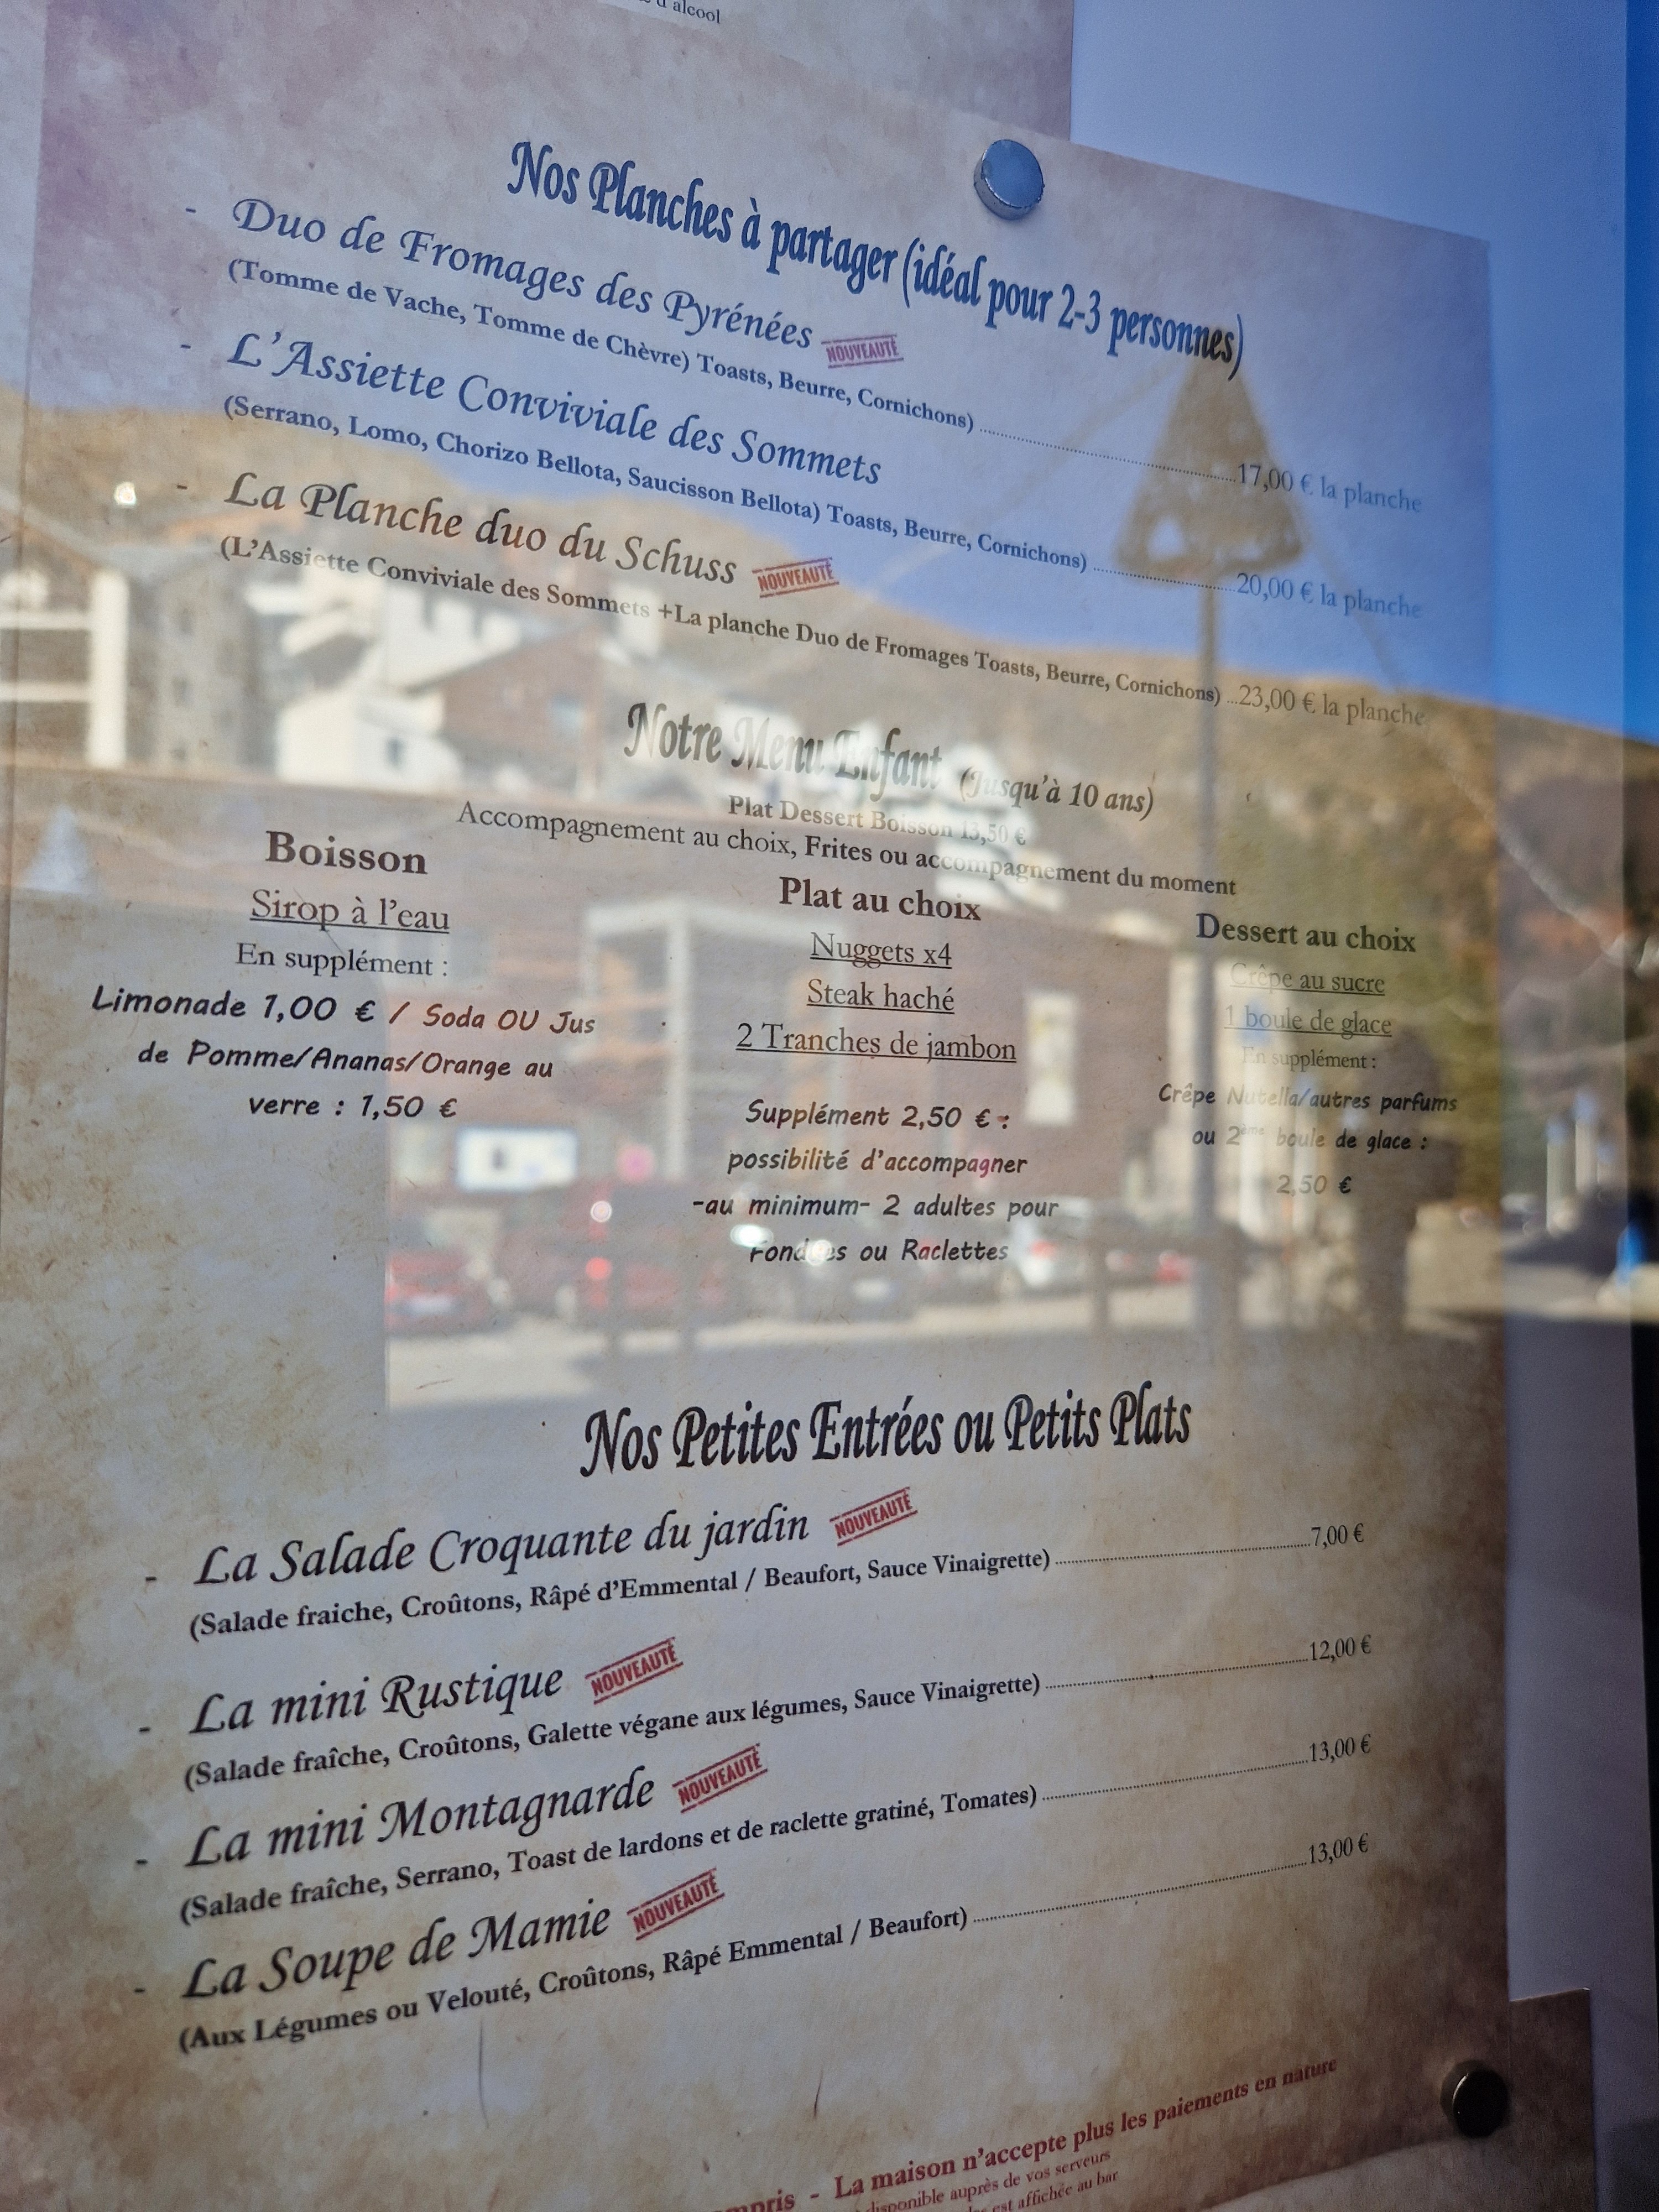 d'alcool
Nos Planches à partager (idéal pour 2-3 personnes)
- Duo de Fromages des Pyrénées NOUVEAUTÉ
(Tomme de Vache, Tomme de Chèvre) Toasts, Beurre, Cornichons) 17,00 € la planche
- L'Assiette Conviviale des Sommets
(Serrano, Lomo, Chorizo Bellota, Saucisson Bellota) Toasts, Beurre, Cornichons) 20,00 € la planche
- La Planche duo du Schuss NOUVEAUTÉ
(L'Assiette Conviviale des Sommets +La planche Duo de Fromages Toasts, Beurre, Cornichons) ...23,00 € la planche
Notre Menu Enfant (Jusqu'à 10 ans)
Plat Dessert Boisson 13,50 €
Accompagnement au choix, Frites ou accompagnement du moment
Boisson
Sirop à l'eau
En supplément :
Limonade 1,00 € / Soda OU Jus
de Pomme/Ananas/Orange au
verre : 1,50 €
Plat au choix
Nuggets x4
Steak haché
2 Tranches de jambon
Supplément 2,50 € :
possibilité d'accompagner
-au minimum- 2 adultes pour
Fondues ou Raclettes
Dessert au choix
Crêpe au sucre
1 boule de glace
En supplément :
Crêpe Nutella/autres parfums
ou 2ème boule de glace :
2,50 €
Nos Petites Entrées ou Petits Plats
- La Salade Croquante du jardin NOUVEAUTÉ
(Salade fraiche, Croûtons, Râpé d'Emmental / Beaufort, Sauce Vinaigrette) 7,00 €
- La mini Rustique NOUVEAUTÉ
(Salade fraîche, Croûtons, Galette végane aux légumes, Sauce Vinaigrette) 12,00 €
- La mini Montagnarde NOUVEAUTÉ
(Salade fraîche, Serrano, Toast de lardons et de raclette gratiné, Tomates) 13,00 €
- La Soupe de Mamie NOUVEAUTÉ
(Aux Légumes ou Velouté, Croûtons, Râpé Emmental / Beaufort) 13,00 €
- La maison n'accepte plus les paiements en nature
disponible auprès de vos serveurs
est affichée au bar